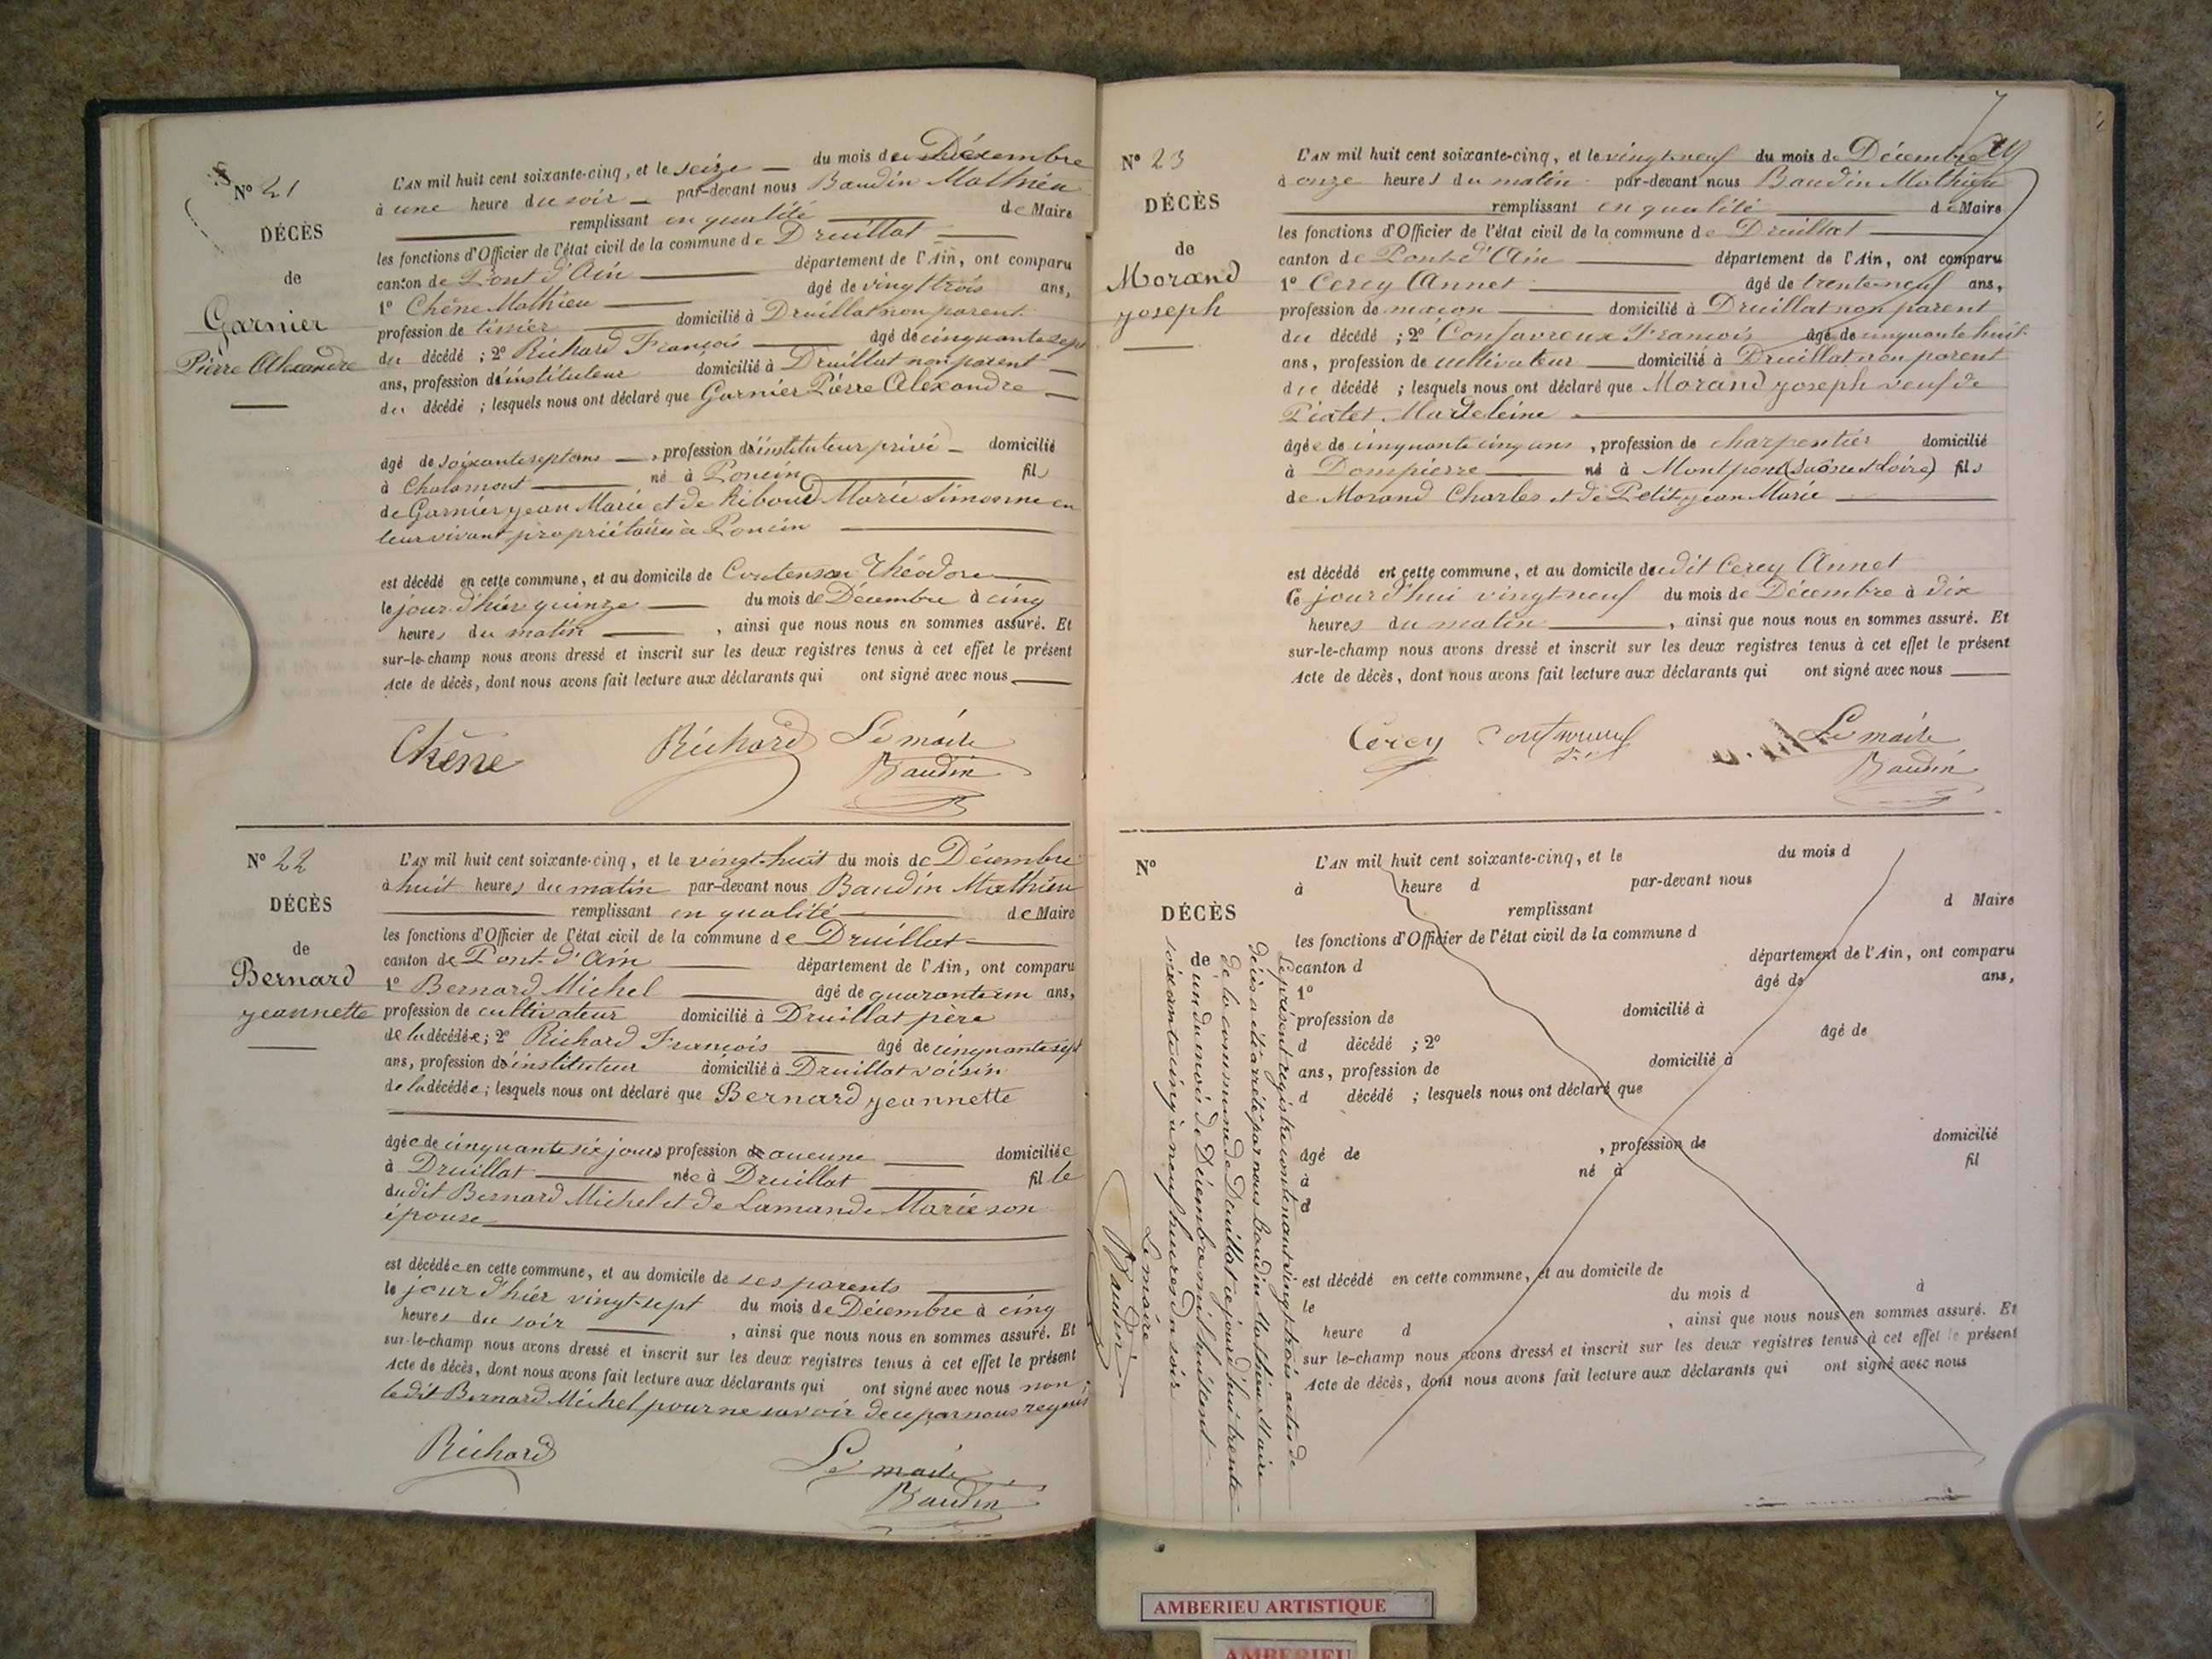 N° 21
DÉCÈS
de
Garnier
Pierre Alexandre
L'AN mil huit cent soixante-cinq, et le seize du mois de Décembre
à une heure du soir par-devant nous Baudin Mathieu
remplissant en qualité de Maire
les fonctions d'Officier de l'état civil de la commune de Druillat
canton de Pont d'Ain département de l'Ain, ont comparu
1° Chêne Mathieu âgé de vingt trois ans,
profession de tissier domicilié à Druillat non parent
du décédé ; 2° Richard François âgé de cinquante sept
ans, profession d'instituteur domicilié à Druillat non parent
du décédé ; lesquels nous ont déclaré que Garnier Pierre Alexandre
âgé de soixante sept ans, profession d'instituteur privé domicilié
à Chalamont né à Poncin fils
de Garnier jean Marie et de Riboud Marie Simonne en
leur vivant propriétaires à Poncin
est décédé en cette commune, et au domicile de Coutenson Théodore
le jour d'hier quinze du mois de Décembre à cinq
heures du matin, ainsi que nous nous en sommes assuré. Et
sur-le-champ nous avons dressé et inscrit sur les deux registres tenus à cet effet le présent
Acte de décès, dont nous avons fait lecture aux déclarants qui ont signé avec nous
Chêne Richard Le maire
Baudin
N° 22
DÉCÈS
de
Bernard
jeannette
L'AN mil huit cent soixante-cinq, et le vingt-huit du mois de Décembre
à huit heures du matin par-devant nous Baudin Mathieu
remplissant en qualité de Maire
les fonctions d'Officier de l'état civil de la commune de Druillat
canton de Pont d'Ain département de l'Ain, ont comparu
1° Bernard Michel âgé de quarante un ans,
profession de cultivateur domicilié à Druillat père
de la décédée ; 2° Richard François âgé de cinquante sept
ans, profession d'instituteur domicilié à Druillat voisin
de la décédée ; lesquels nous ont déclaré que Bernard jeannette
âgée de cinquante six jours profession de aucune domiciliée
à Druillat née à Druillat fille
dudit Bernard Michel et de Lamande Marie son
épouse
est décédée en cette commune, et au domicile de ses parents
le jour d'hier vingt-sept du mois de Décembre à cinq
heures du soir, ainsi que nous nous en sommes assuré. Et
sur-le-champ nous avons dressé et inscrit sur les deux registres tenus à cet effet le présent
Acte de décès, dont nous avons fait lecture aux déclarants qui ont signé avec nous non
ledit Bernard Michel pour ne savoir de ce par nous requis
Richard Le maire
Baudin
7
N° 23
DÉCÈS
de
Morand
joseph
L'AN mil huit cent soixante-cinq, et le vingt-neuf du mois de Décembre
à onze heures du matin par-devant nous Baudin Mathieu
remplissant en qualité de Maire
les fonctions d'Officier de l'état civil de la commune de Druillat
canton de Pont-d'Ain département de l'Ain, ont comparu
1° Cercy Annet âgé de trente-neuf ans,
profession de maçon domicilié à Druillat non parent
du décédé ; 2° Confavreux François âgé de cinquante huit
ans, profession de cultivateur domicilié à Druillat non parent
du décédé ; lesquels nous ont déclaré que Morand joseph veuf de
Piatet Madeleine
âgé de cinquante cinq ans, profession de charpentier domicilié
à Dompierre né à Montpont (Saône et Loire) fils
de Morand Charles et de Petitjean Marie
est décédé en cette commune, et au domicile dudit Cercy Annet
Ce jourd'hui vingt-neuf du mois de Décembre à dix
heures du matin, ainsi que nous nous en sommes assuré. Et
sur-le-champ nous avons dressé et inscrit sur les deux registres tenus à cet effet le présent
Acte de décès, dont nous avons fait lecture aux déclarants qui ont signé avec nous
Cercy Le maire
Baudin
N°
DÉCÈS
de
L'AN mil huit cent soixante-cinq, et le du mois d
à heure d par-devant nous
remplissant d Maire
les fonctions d'Officier de l'état civil de la commune d
canton d département de l'Ain, ont comparu
1° âgé de ans,
profession de domicilié à
d décédé ; 2° âgé de
ans, profession de domicilié à
d décédé ; lesquels nous ont déclaré que
âgé de , profession de domicilié
à né à fil
d
est décédé en cette commune, et au domicile de
le du mois d à
heure d , ainsi que nous nous en sommes assuré. Et
sur le-champ nous avons dressé et inscrit sur les deux registres tenus à cet effet le présent
Acte de décès, dont nous avons fait lecture aux déclarants qui ont signé avec nous
Le présent registre contenant vingt trois actes de
décès a été arrêté par nous Baudin Mathieu Maire
de la commune de Druillat ce jourd'hui trente
un du mois de Décembre mil huit cent
soixante cinq à neuf heures du soir
Le maire
Baudin
AMBERIEU ARTISTIQUE
AMBERIEU